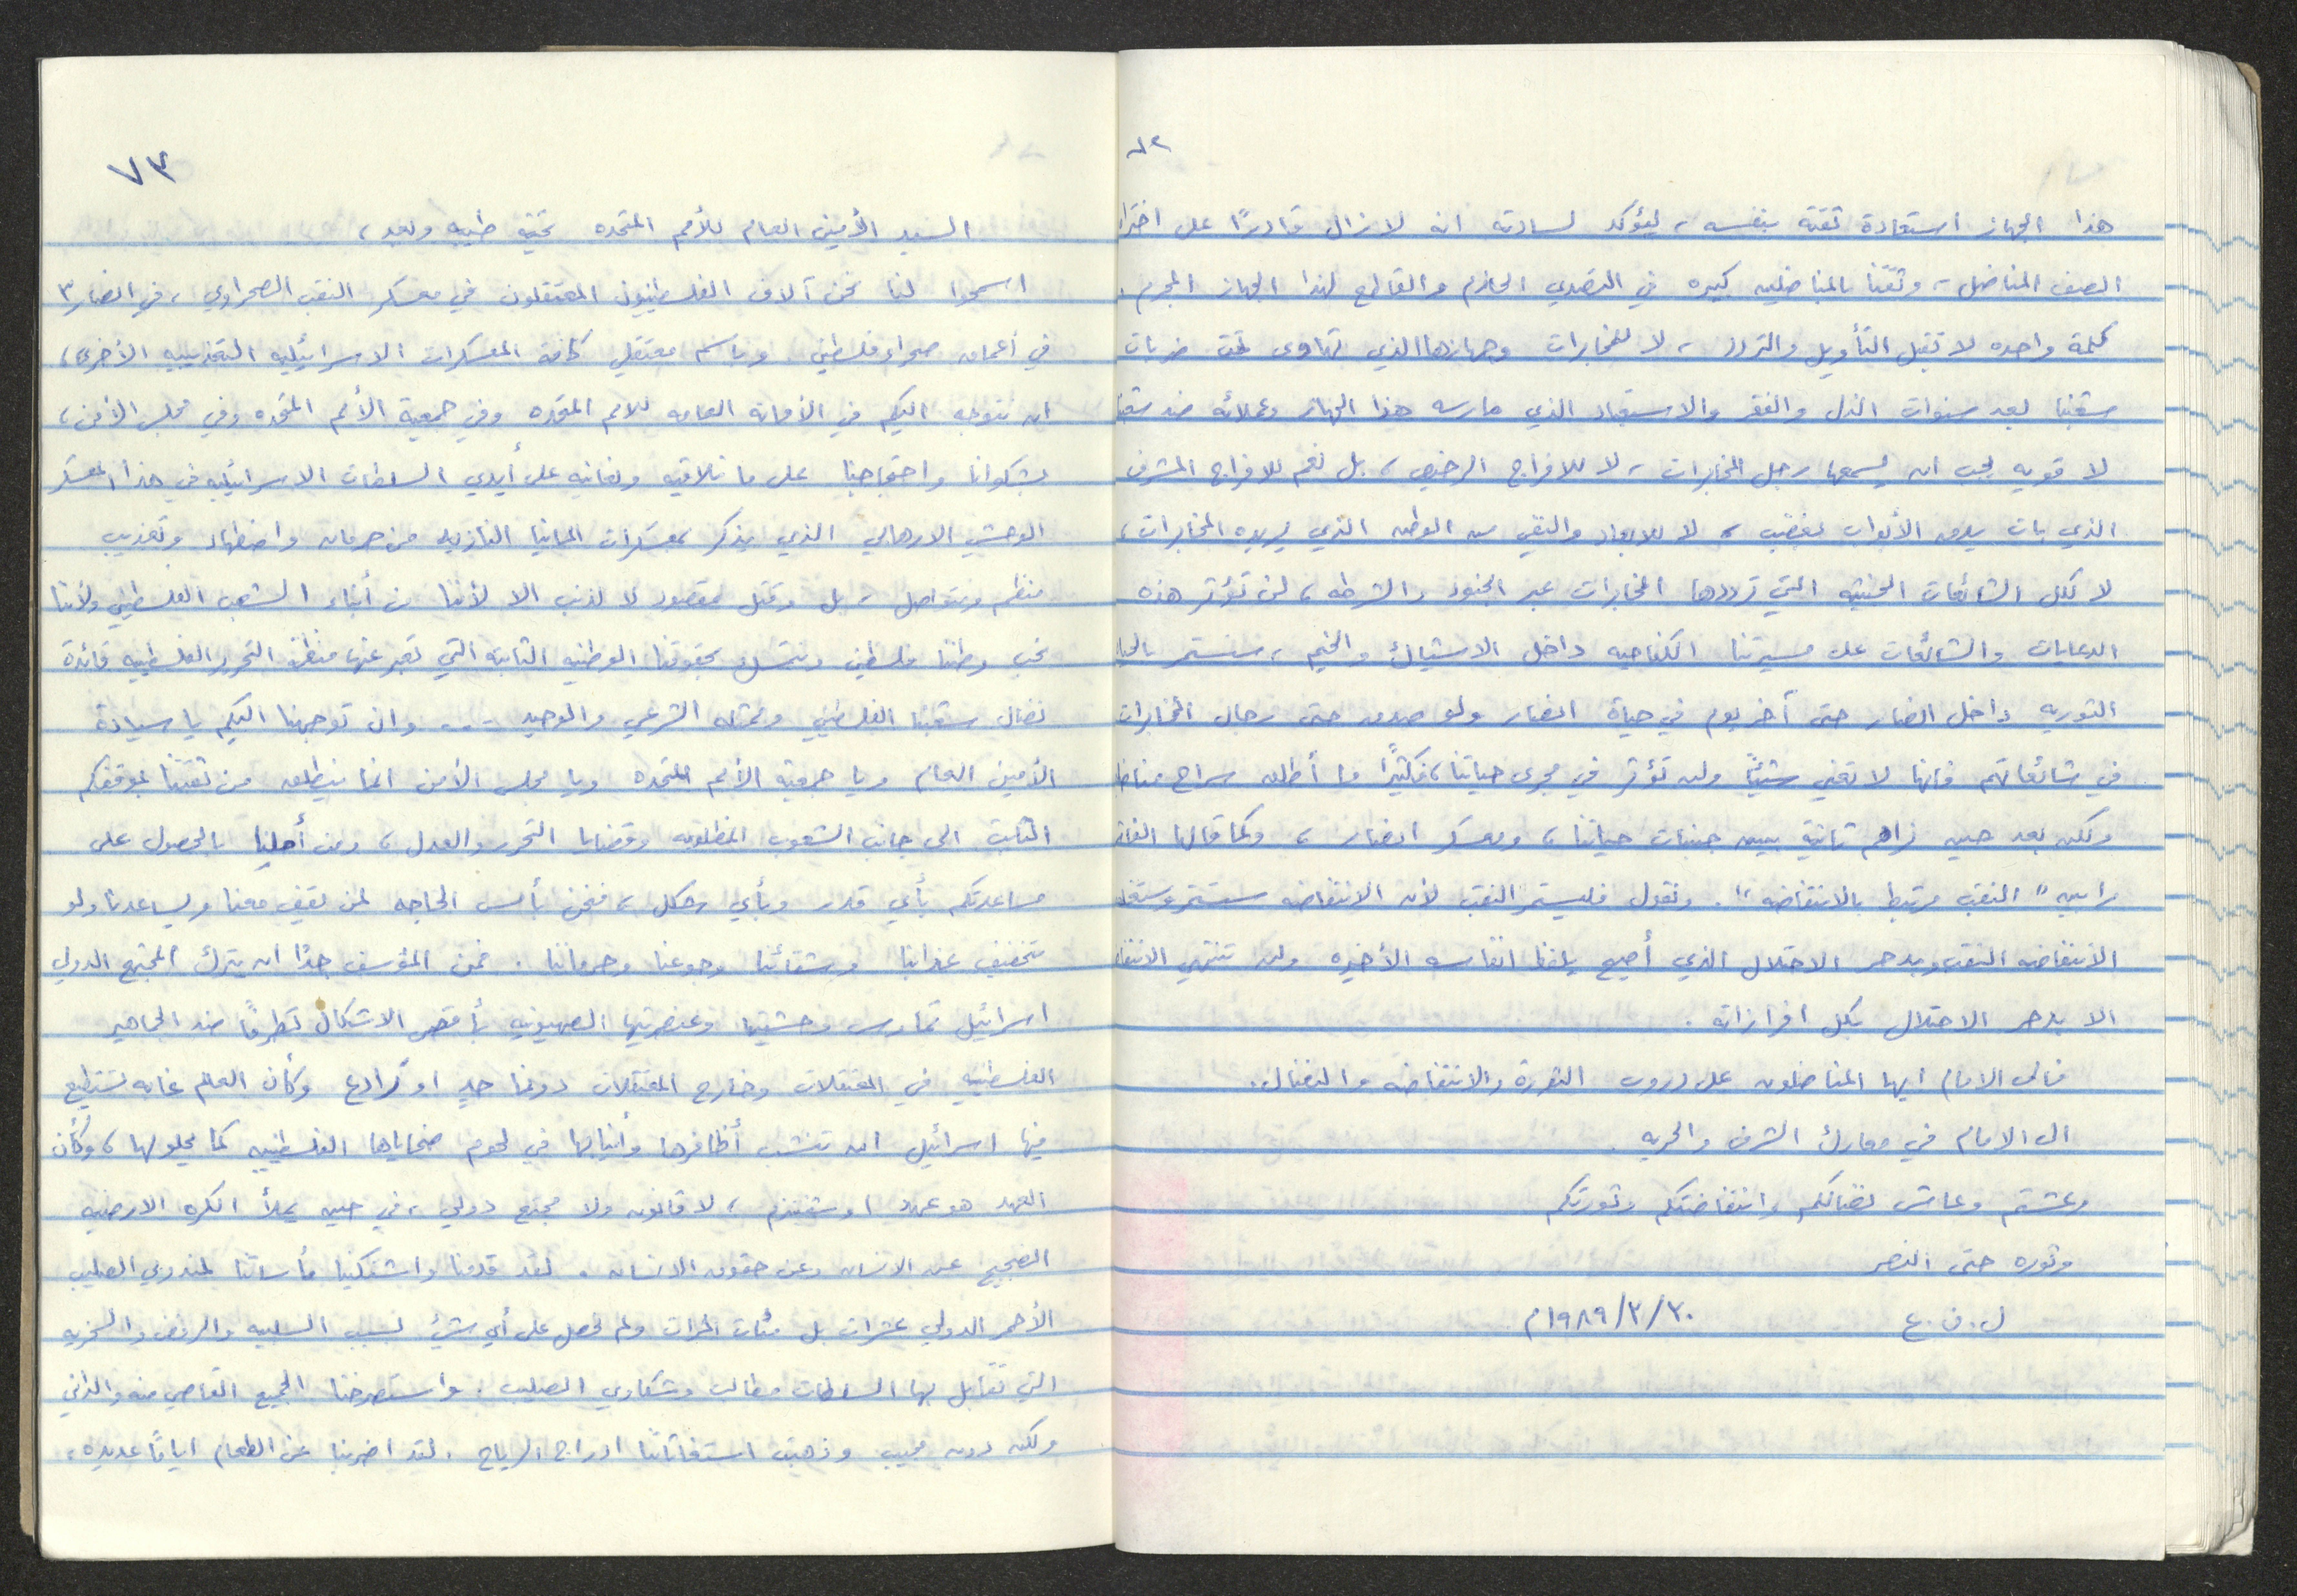 ٧٢
هذا الجهاز استعادة ثقته بنفسه، ليؤكد لسادته انه لا زال قادرًا على
الصف المناضل، وثقتنا بالمناضلين كبيره في التصدي الحازم والقاطع لهذا الجهاز المجرم.
كلمة واحده لا تقبل التأويل والتردد، لا للمخابرات وجهازها الذي تهاوى تحت ضربات
شعبنا بعد سنوات الذل والفقر والاستعباد الذي مارسه هذا الجهاز وعملائه ضد شعبنا
لا قويه يجب ان يسمعها رجل المخابرات، لا للافراج الرخيص، بل نعم للافراج المشرف
الذي بات يدق الأبواب بغضب، لا للابعاد والنفي من الوطن الذي يريده المخابرات،
لا لكل الشائعات التي ترددها المخابرات عبر الجنود والشرطه، لن تؤثر هذه
الدعايات والشائعات على مسيرتنا الكفاحيه داخل الاشياك والخيم، سنستمر
الثوريه داخل انصار حتى آخر يوم في حياة انصار ولو صدق حتى رجال المخابرات
في شائعاتهم فانها لا تعني شيئًا ولن تؤثر في مجرى حياتنا، فكثيرًا ما أطلق سراح
ولكن بعد حين نراهم ثانية بين جنبات حياتنا، ومعسكر انصار، وكما قالها
رابين "النقب مرتبط بالانتفاضه". ونقول فليستمر النقب لأن الانتفاضه ستستمر
الأنتفاضه النقب ويدحر الاحتلال الذي أصبح يلفظ انفاسه الأخيره ولن تنتهي
الا بدحر الاحتلال بكل افرازاته.
فالى الامام ايها المناضلون على دروب الثورة والانتفاضه والنضال.
الى الامام في معارك الشرف والحريه.
وعشتم وعاش نضالكم وانتفاضتكم وثورتكم
وثوره حتى النصر
ل.ن.ع ٢٠/٣/١٩٨٩م
٧٣
السيد الأمين العام للأمم المتحده تحيه طيبه وبعد،
اسمحوا لنا نحن آلاف الفلسطينيون المعتقلون في معسكر النقب الصحراوي، في انصار٣
في أعماق صحراء فلسطين وباسم معتقلي كافة المعسكرات الاسرائيليه التعذيبيه الأخرى،
ان نتوجه اليكم في الأمانه العامه للامم المتحده وفي جمعية الأمم المتحده وفي مجلس الأمن،
بشكوانا واحتجاجنا على ما نلاقيه ونعانيه على أيدي السلطات الاسرائيليه في هذا المعسكر
الوحشي الارهابي الذي يذكر بمعسكرات المانيا النازيه من حرمان واضطهاد وتعذيب
منظم ومتواصل، بل وقتل مقصود لا لذنب الا لأننا من أبناء الشعب الفلسطيني ولأننا
نحب وطننا فلسطين ونتمسك بحقوقنا الوطنيه الثابته التي تعبر عنها منظمة التحرير الفلسطينيه قائدة
نضال شعبنا الفلسطيني وممثله الشرعي والوحيد ... وان توجهنا اليكم يا سيادة
الأمين العام ويا جمعية الأمم المتحده ويا مجلس الأمن انما ينطلق من ثقتنا بموقفكم
الثابت الى جانب الشعوب المظلومه وقضايا التحرر والعدل، ومن أملنا بالحصول على
مساعدتكم بأي قدر وبأي شكل، فنحن بأمس الحاجه لمن يقف معنا ويساعدنا ولو
بتخفيف عذابنا وشقائنا وجوعنا وحرماننا. فمن المؤسف جدًا ان يترك المجتمع الدولي
اسرائيل تمارس وحشيتها وعنصريتها الصهيونيه بأقصى الاشكال تطرفًا ضد الجماهير
الفلسطينيه في المعتقلات وخارج المعتقلات دونما حدٍ او رادع وكأن العالم غابه تستطيع
فيها اسرائيل ان تنشب أظافرها وأنيابها في لحوم ضحاياها الفلسطينيه كما يحلو لها، وكأن
العهد هو عهد اوشفتنزم، لا قانون ولا مجتمع دولي، في حين يملأ الكره الارضيه
الضجيج عن الانسان وعن حقوق الانسان. لقد قدمنا واشتكينا مأساتنا لمندوبي الصليب
الأحمر الدولي عشرات بل مئات المرات ولم نحصل على أي شيئ بسبب السلبيه والرفض والسخريه
التي تقابل بها السلطات مطالب وشكاوي الصليب. واستصرخنا الجميع القاصي منه والداني
ولكن دون مجيب وذهبت استغاثاتنا ادراج الرياح. لقد اضربنا عن الطعام ايامًا عديده،